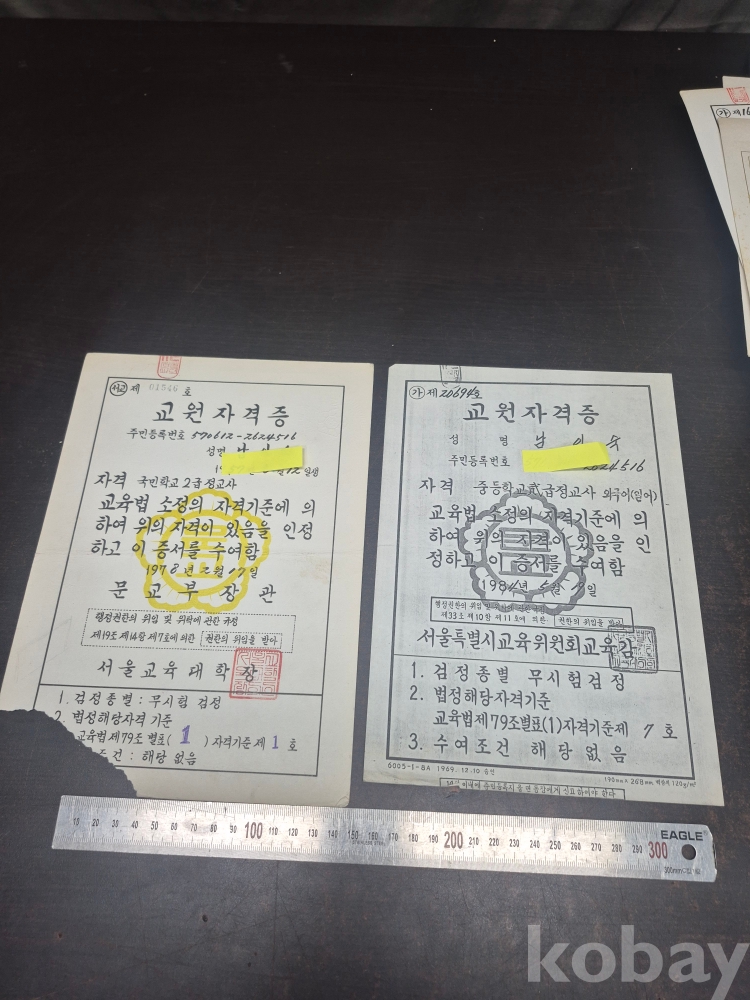 서교 제 01546 호
교원자격증
주민등록번호 570612-2624516
성명
12일생
자격 국민학교 2급 정교사
교육법 소정의 자격기준에 의
하여 위의 자격이 있음을 인정
하고 이 증서를 수여함
1978년 2월 17일
문교부장관
행정권한의 위임 및 위탁에 관한 규정
제19조 제14항 제7호에 의한 권한의 위임을 받아
서울교육대학장
1. 검정종별: 무시험 검정
2. 법정해당자격 기준
교육법제79조 별표( 1 ) 자격기준 제 1 호
조건: 해당 없음
가 제 20694호
교원자격증
성 명 남
주민등록번호 2624516
자격 중등학교 2급정교사 외국어(일어)
교육법 소정의 자격기준에 의
하여 위의 자격이 있음을 인
정하고 이 증서를 수여함
1984년
제33조 제10항 제11호에 의한 권한의 위임을 받아
서울특별시교육위원회교육감
1. 검정종별 무시험검정
2. 법정해당자격기준
교육법제79조별표(1)자격기준제 7 호
3. 수여조건 해당없음
6005-1-8A 1969. 12. 10 승인
190mm×268mm 백상지 120g/m²
가 제16
10 20 30 40 50 60 70 80 90 100 110 120 130 140 150 160 170 180 190 200 210 220 230 240 250 260 270 280 290 300
EAGLE
kobay